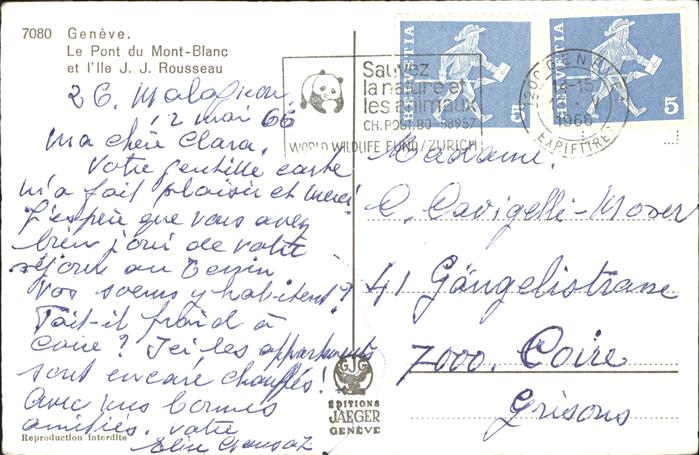 7080 Genève.
Le Pont du Mont-Blanc
et l'Ile J. J. Rousseau
26. Malagnou
2 mai 66
Ma chère Clara,
Votre gentille carte
m'a fait plaisir et merci
J'espère que vous avez
bien joui de votre
séjour au Tessin
Vos soeurs y habitent?
Fait-il froid à
Coire? Ici les appartements
sont encore chauffés!
Avec mes bonnes
amitiés. votre
Elise
Reproduction interdite
Sauvez
la nature et
les animaux
CH. POST 80-38957
WORLD WILDLIFE FUND/ZURICH
HELVETIA
5
HELVETIA
5
1200 GENÈVE
14-15
1966
EXP. LETTRES
Madame.
C. Cavigelli-Moser
41 Gängelistrasse
7000. Coire
Grisons
GJG
EDITIONS
JAEGER
GENÈVE